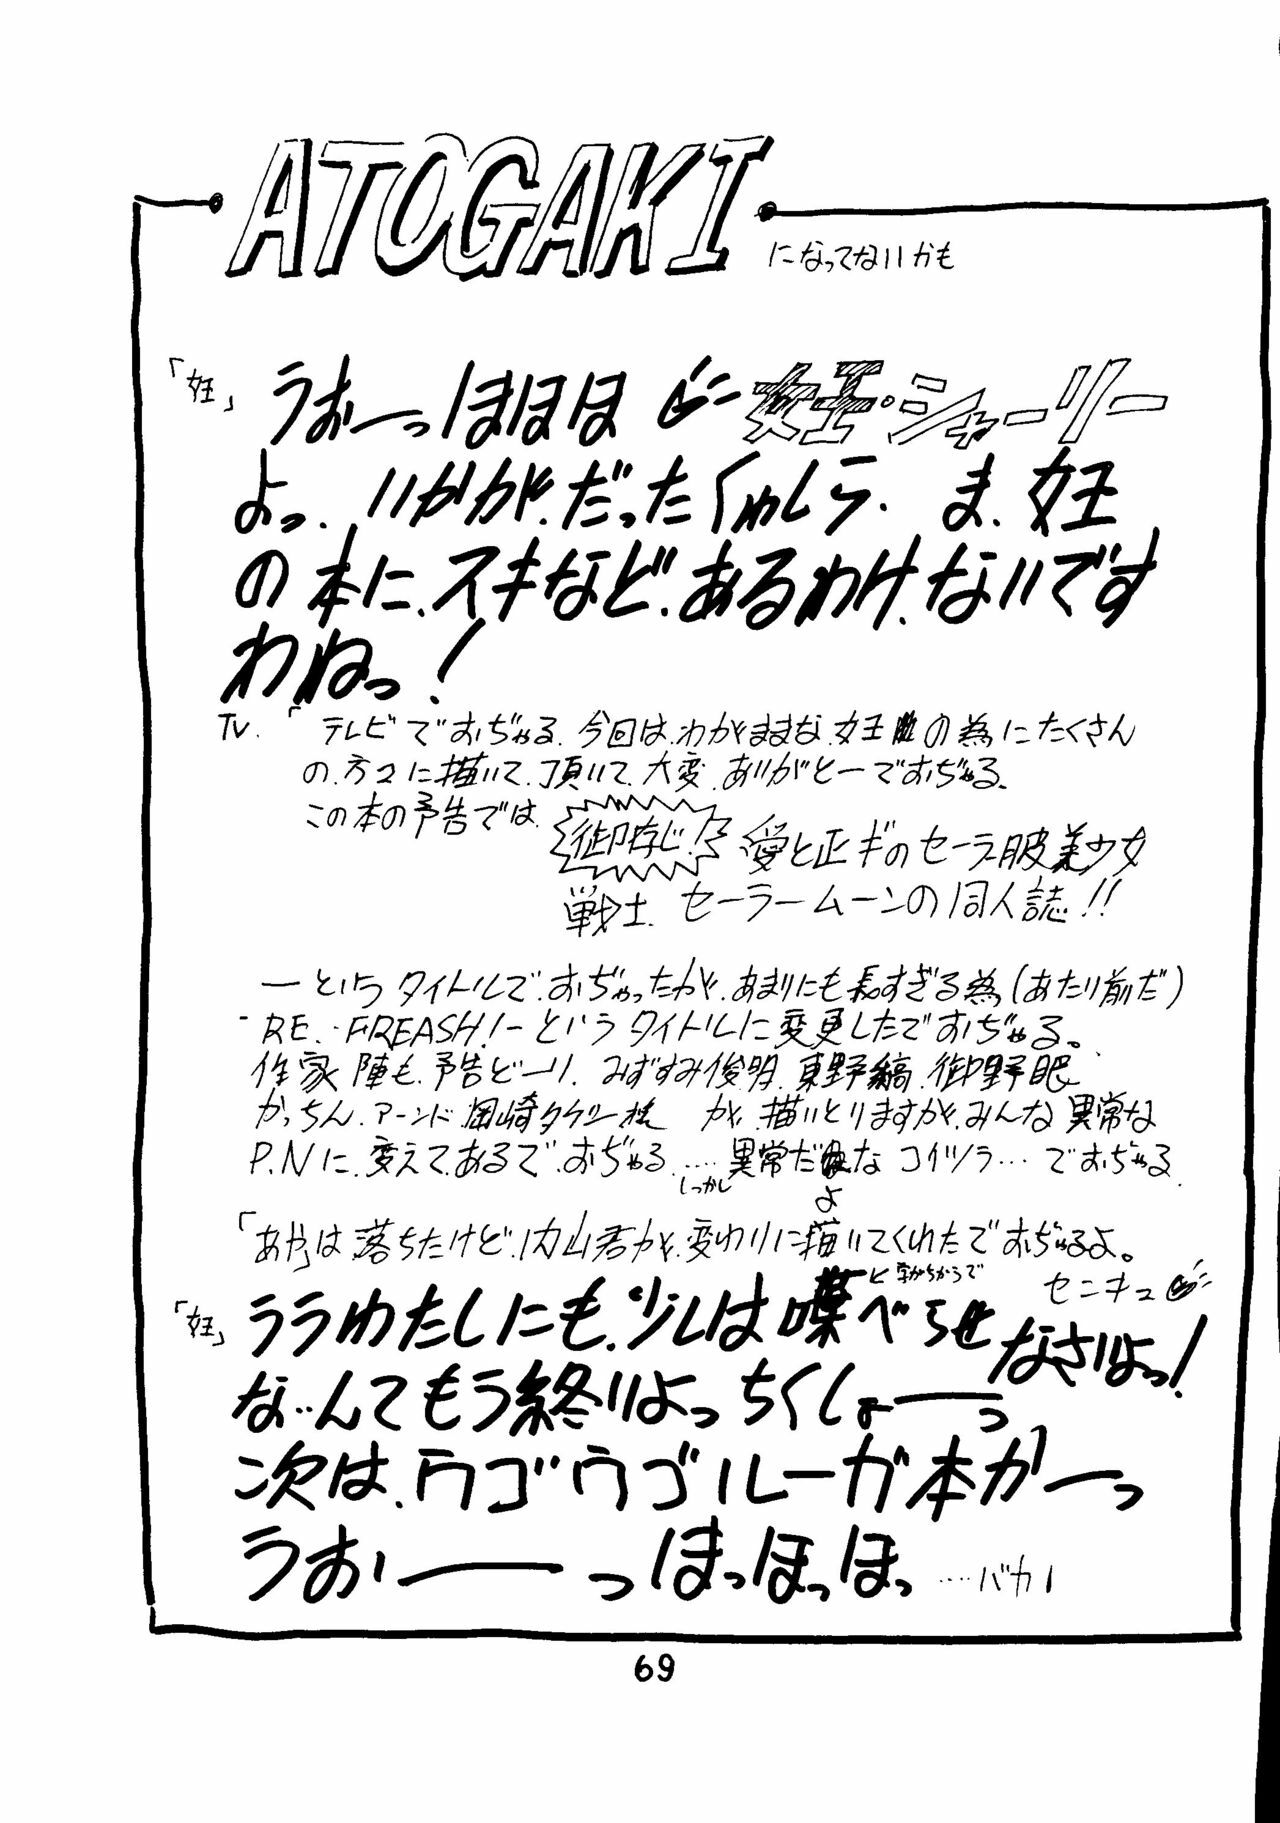 ATOGAKI
になってないかも
「女王」 うおーっほほほ 女王・シャーリー
よっ、いかがだったくゎしら、ま、女王
の本に、スキなど、あるわけ、ないです
わねっ!
TV.「テレビでおぢゃる、今回は、わがままな、女王の為にたくさん
の、方々に描いて、頂いて、大変、ありがとーでおぢゃる、
この本の予告では、
御存じ! 愛と正ギのセーラー服美少女
戦士、セーラームーンの同人誌!!
ーというタイトルで、おぢゃったが、あまりにも長すぎる為(あたり前だ)
RE.FREASH!ーというタイトルに変更したでおぢゃる。
作家陣も、予告どーり、みずすみ俊明、東野縞、御野眼
かっちん、アーンド、岡崎タケシ様 が、描いとりますが、みんな異常な
P.Nに、変えて、あるで、おぢゃる、……しっかし異常だよなコイツラ…でおぢゃる
「あやは落ちたけど、内山君が、変わりに描いてくれたでおぢゃるよ。
センキュ
「女王」 ララわたしにも、少しは喋べらせなさいよっ!
な、んてもう終りよっちくしょーっ
次は、ウゴウゴルーガ本かーっ
うおーーっほっほっほっ …バカ!
69